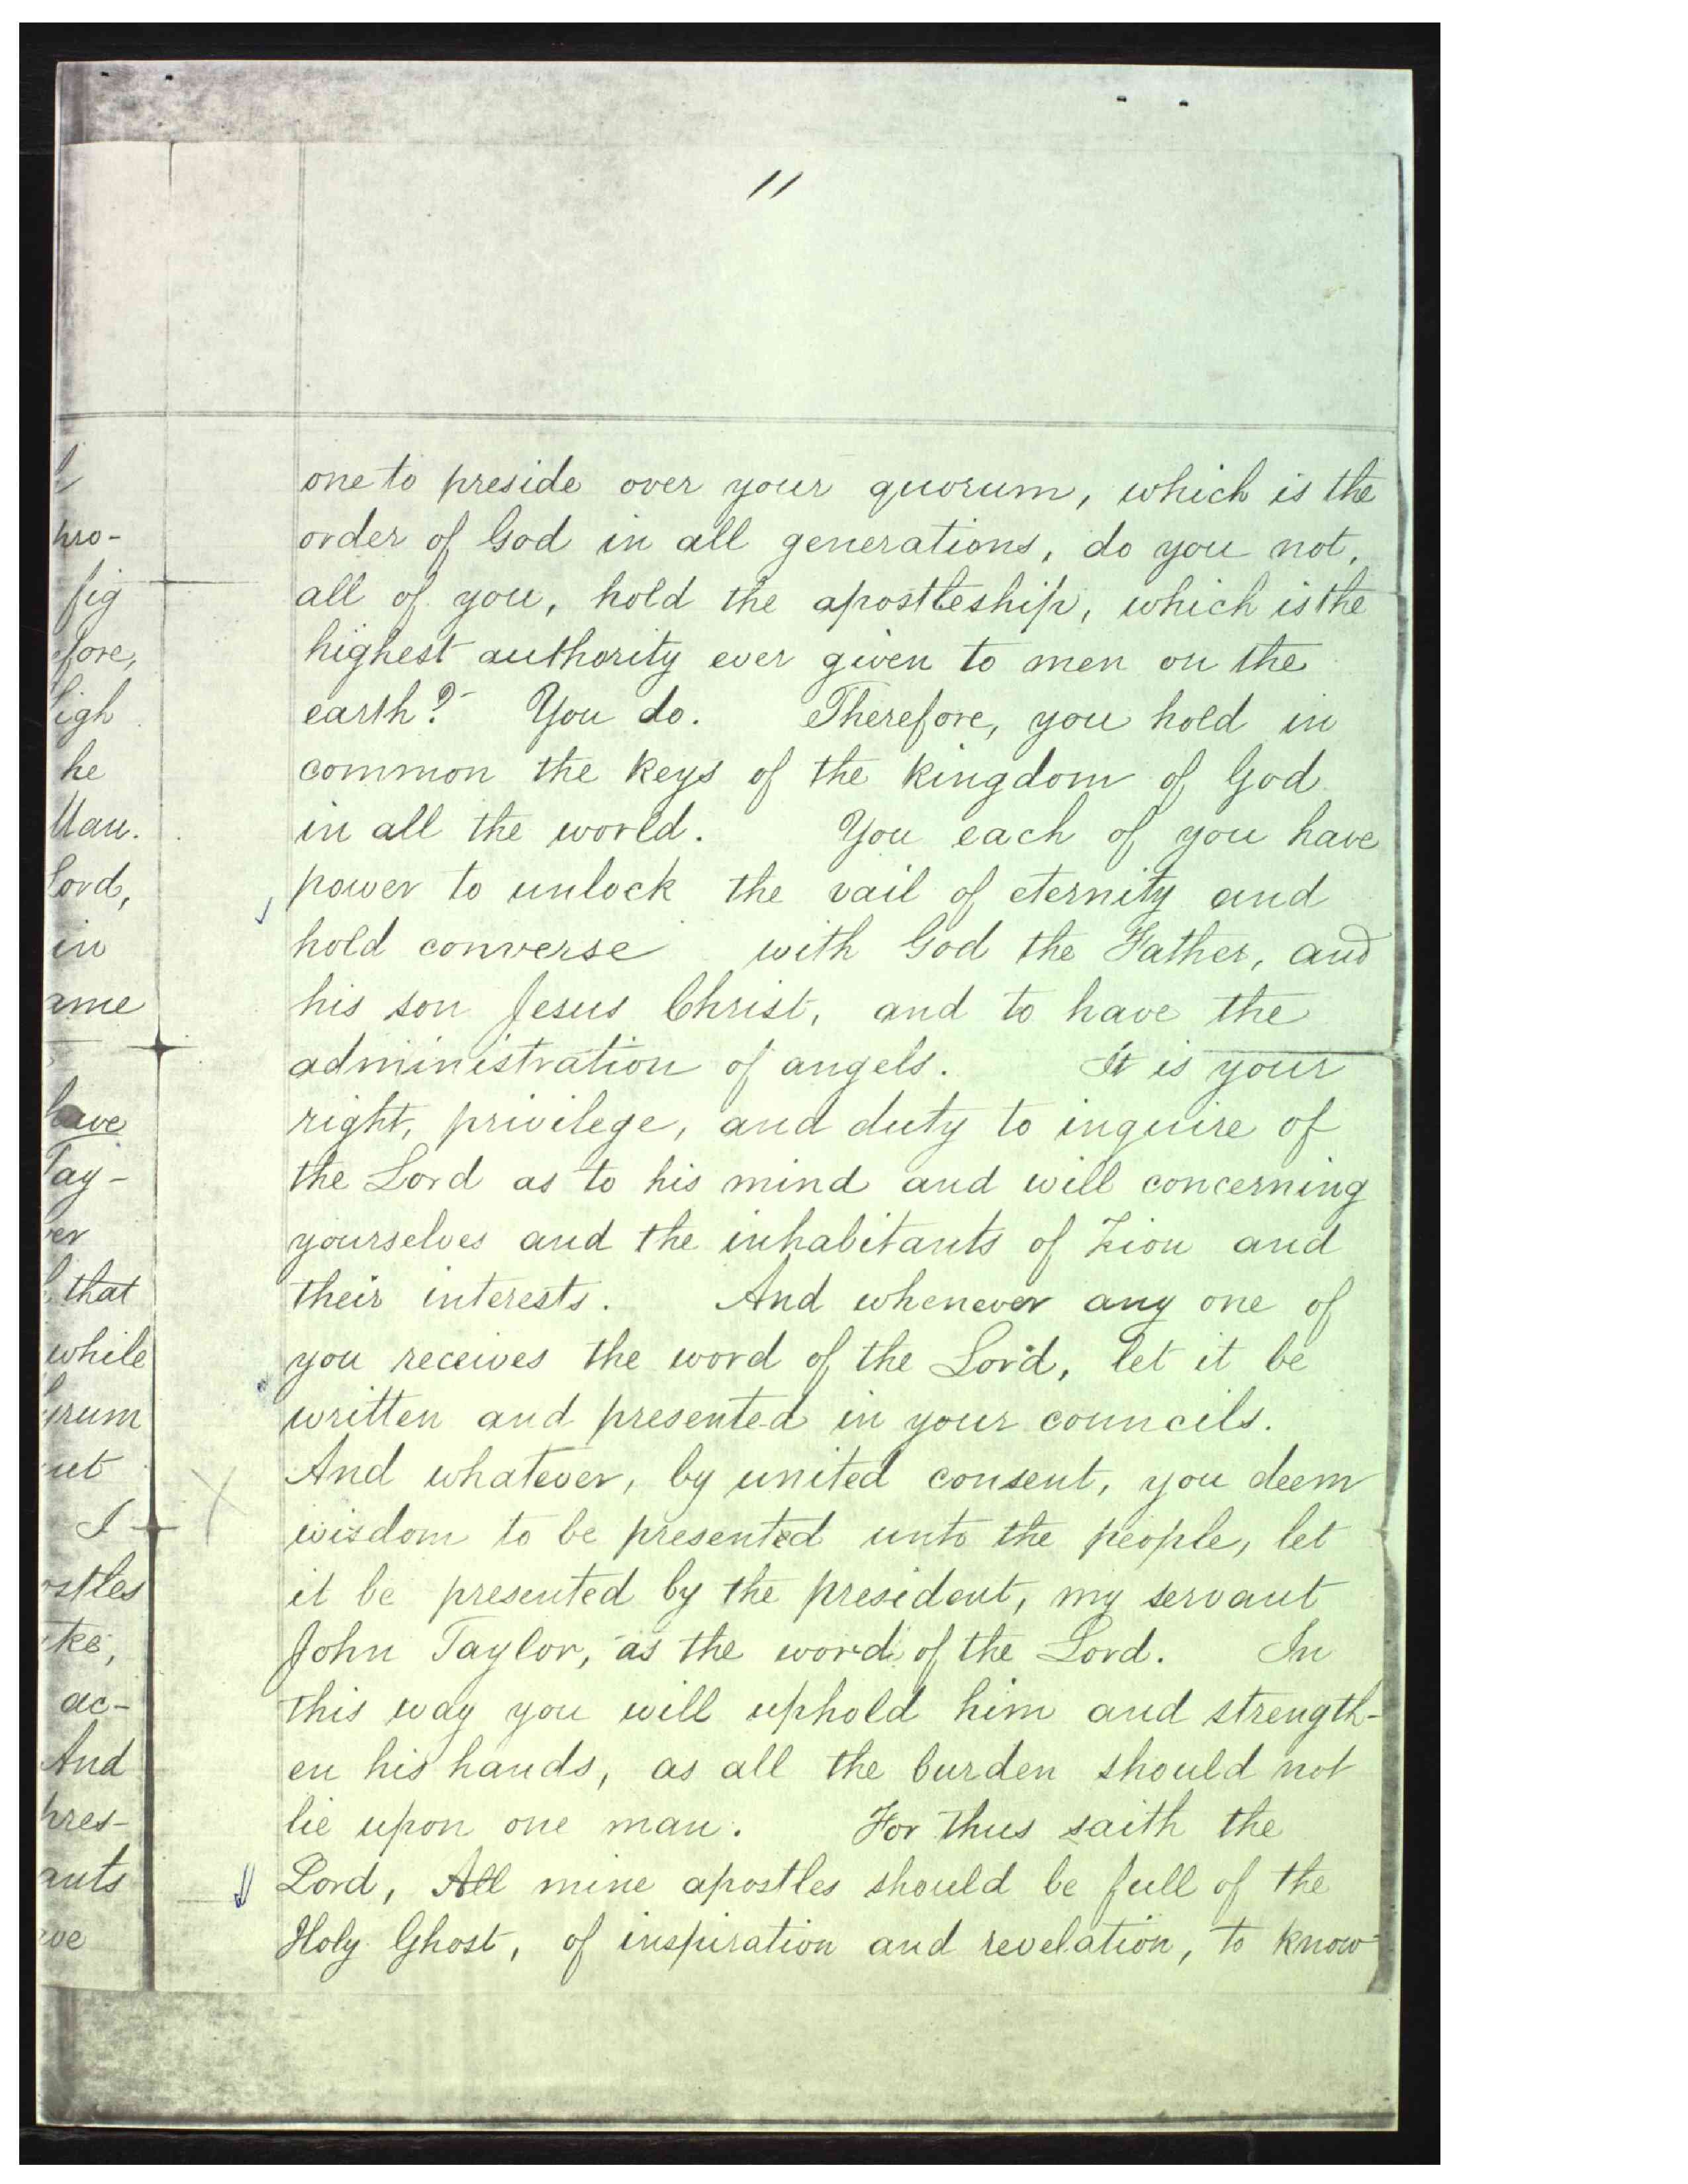 11
one to preside over your quorum, which is the
order of God in all generations, do you not,
all of you, hold the apostleship, which is the
highest authority ever given to men on the
earth? You do. Therefore, you hold in
common the keys of the kingdom of God
in all the world. You each of you have
power to unlock the vail of eternity and
hold converse with God the Father, and
his son Jesus Christ, and to have the
administration of angels. It is your
right, privilege, and duty to inquire of
the Lord as to his mind and will concerning
yourselves and the inhabitants of Zion and
their interests. And whenever any one of
you receives the word of the Lord, let it be
written and presented in your councils.
And whatever, by united consent, you deem
wisdom to be presented unto the people, let
it be presented by the president, my servant
John Taylor, as the word of the Lord. In
this way you will uphold him and strength-
en his hands, as all the burden should not
lie upon one man. For thus saith the
Lord, All mine apostles should be full of the
Holy Ghost, of inspiration and revelation, to know
pro-
fig
fore,
igh
he
Man.
Lord,
in
ame
have
Tay-
er
that
while
rum
ut
I
ostles
ke,
ac-
And
pres-
ants
ve